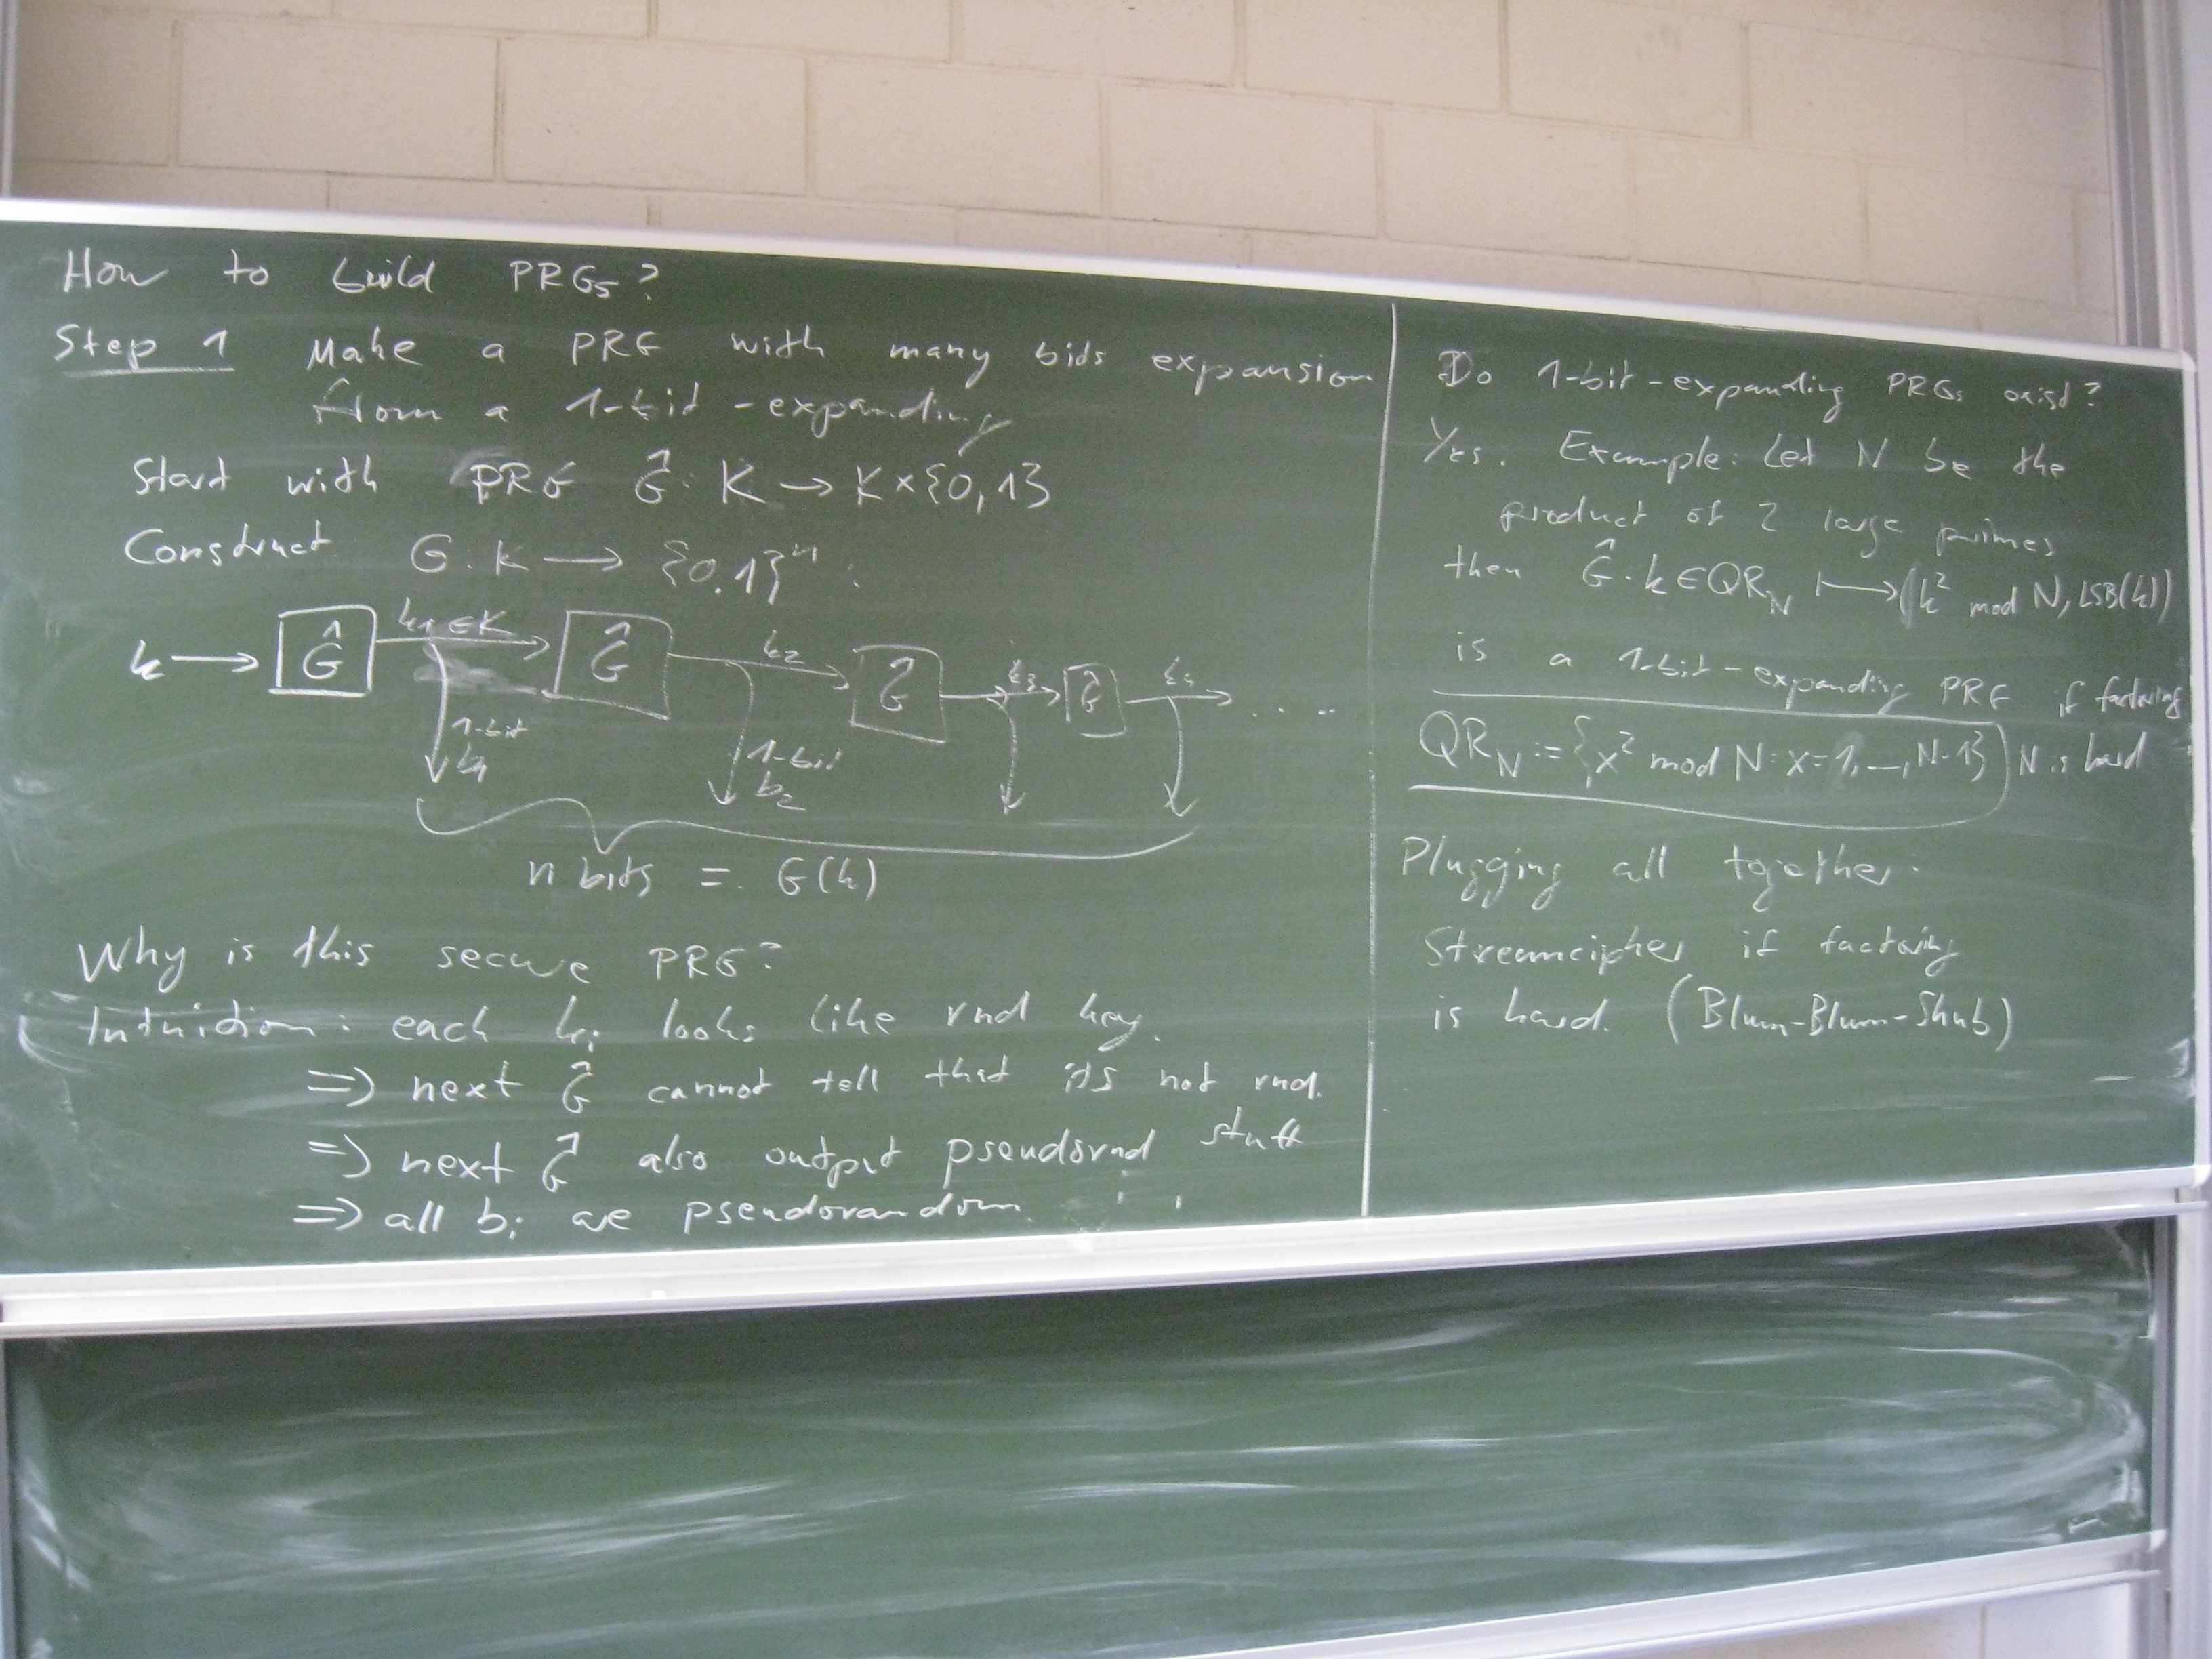 How to build PRGs?
Step 1 Make a PRG with many bits expansion
from a 1-bit-expanding
Start with PRG Ĝ: K → K×{0,1}
Construct G: K → {0,1}ⁿ:
k → Ĝ k₁∈K Ĝ k₂ Ĝ k₃ Ĝ k₄ ....
1-bit b₁
1-bit b₂
n bits =: G(k)
Why is this secure PRG?
Intuidion: each kᵢ looks like rnd key.
⇒ next Ĝ cannot tell that its not rnd.
⇒ next Ĝ also output pseudornd stuff
⇒ all bᵢ are pseudorandom.
Do 1-bit-expanding PRGs exist?
Yes. Example: Let N be the
product of 2 large primes
then Ĝ: k∈QR_N ↦ (k² mod N, LSB(k))
is a 1-bit-expanding PRG if factoring
N is hard
QR_N := {x² mod N: x=1,...,N-1}
Plugging all together:
Streamcipher if factoring
is hard. (Blum-Blum-Shub)